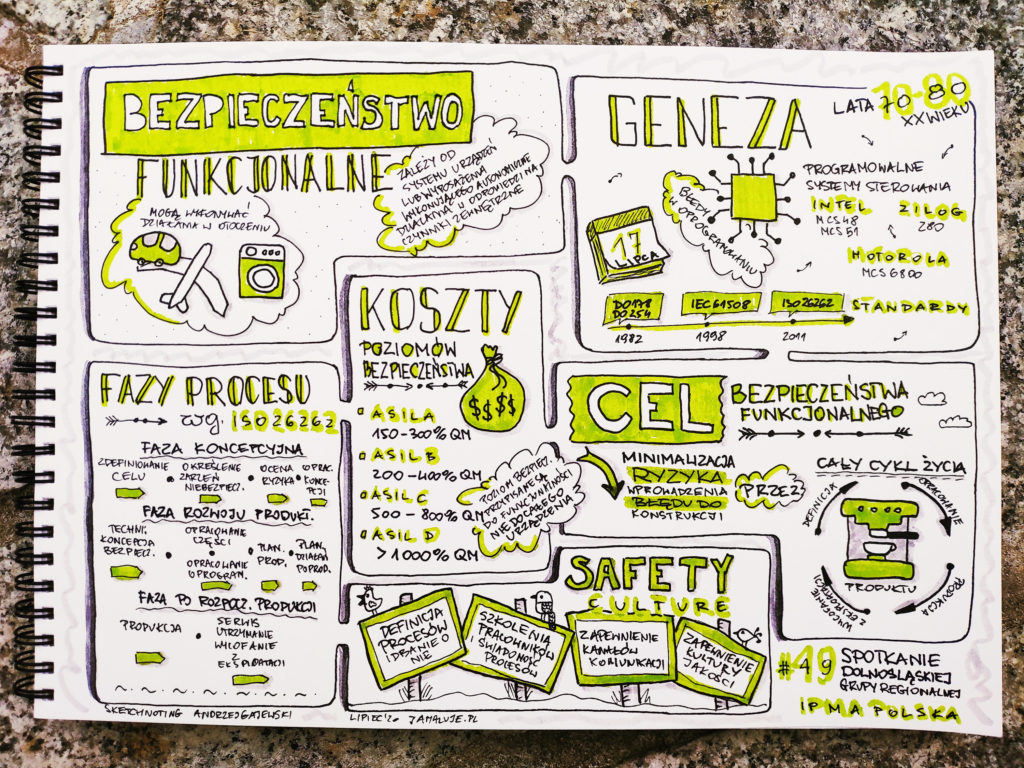 BEZPIECZEŃSTWO
FUNKCJONALNE
ZALEŻY OD
SYSTEMU URZĄDZEŃ
LUB WYPOSAŻENIA
WYKONUJĄCEGO AUTONOMICZNE
DZIAŁANIA W ODPOWIEDZI NA
CZYNNIKI ZEWNĘTRZNE
MOGĄ WYKONYWAĆ
DZIAŁANIA W OTOCZENIU
GENEZA
LATA 70-80
XX WIEKU
BŁĘDY
W OPROGRAMOWANIU
17
LIPCA
PROGRAMOWALNE
SYSTEMY STEROWANIA
INTEL
MCS48
MCS51
ZILOG
Z80
MOTOROLA
MCS6800
DO178
DO254
IEC61508
ISO26262
STANDARDY
1982
1998
2011
KOSZTY
POZIOMÓW
BEZPIECZEŃSTWA
$$ $$
ASIL A
150-300% QM
ASIL B
200-400% QM
ASIL C
500-800% QM
ASIL D
>1000% QM
POZIOM BEZPIECZ.
PRZYPISANE SĄ
DO FUNKCJONALNOŚCI
NIE DO CAŁEGO
URZĄDZENIA
FAZY PROCESU
wg. ISO26262
FAZA KONCEPCYJNA
ZDEFINIOWANIE
CELU
OKREŚLENIE
ZAGROŻEŃ
NIEBEZPIECZ.
OCENA
RYZYKA
OPRAC.
KONCE-
PCJI
FAZA ROZWOJU PRODUKT.
TECHNI.
KONCEPCJA
BEZPIECZ.
OPRACOWANIE
CZĘŚCI
OPRACOWANIE
OPROGRAM.
PLAN.
PROD.
PLAN.
DZIAŁAŃ
POPROD.
FAZA PO ROZPOCZ. PRODUKCJI
PRODUKCJA
SERWIS
UTRZYMANIE
WYCOFANIE
Z
EKSPLOATACJI
CEL
BEZPIECZEŃSTWA
FUNKCJONALNEGO
MINIMALIZACJA
RYZYKA
WPROWADZENIA
BŁĘDU DO
KONSTRUKCJI
PRZEZ
CAŁY CYKL ŻYCIA
DEFINICJA
OPRACOWANIE
PRODUKCJA
WYCOFANIE
Z EKSPLOATACJI
PRODUKTU
SAFETY
CULTURE
DEFINICJA
PROCESÓW
I DBANIE O
NIE
SZKOLENIA
PRACOWNIKÓW
I ŚWIADOMOŚĆ
PROCESÓW
ZAPEWNIENIE
KANAŁÓW
KOMUNIKACJI
ZAPEWNIENIE
KULTURY
JAKOŚCI
#49 SPOTKANIE
DOLNOŚLĄSKIEJ
GRUPY REGIONALNEJ
IPMA POLSKA
SKETCHNOTING ANDRZEJ GAJEWSKI
LIPIEC'20 JAMALUJE.PL